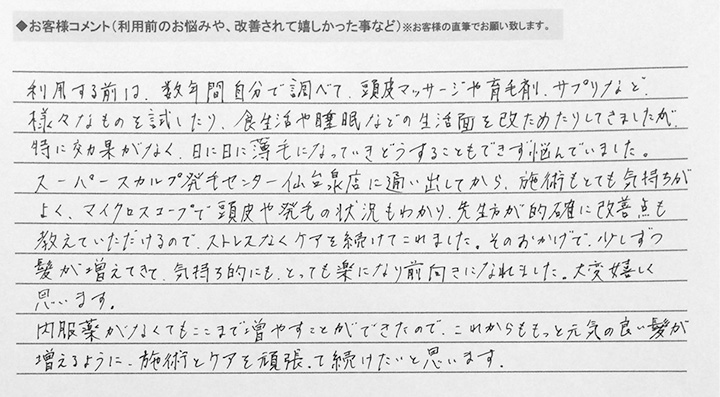 ◆お客様コメント(利用前のお悩みや、改善されて嬉しかった事など)※お客様の直筆でお願い致します。
利用する前は、数年間自分で調べて、頭皮マッサージや育毛剤、サプリなど、
様々なものを試したり、食生活や睡眠などの生活面を改ためたりしてきましたが、
特に効果がなく、日に日に薄毛になっていきどうすることもできず悩んでいました。
スーパースカルプ発毛センター仙台泉店に通い出してから、施術もとても気持ちが
よく、マイクロスコープで頭皮や発毛の状況もわかり、先生方が的確に改善点も
教えていただけるので、ストレスなくケアを続けてこれました。そのおかげで、少しずつ
髪が増えてきて、気持ち的にも、とっても楽になり前向きになれました。大変嬉しく
思います。
内服薬がなくてもここまで増やすことができたので、これからももっと元気の良い髪が
増えるように、施術とケアを頑張って続けたいと思います。